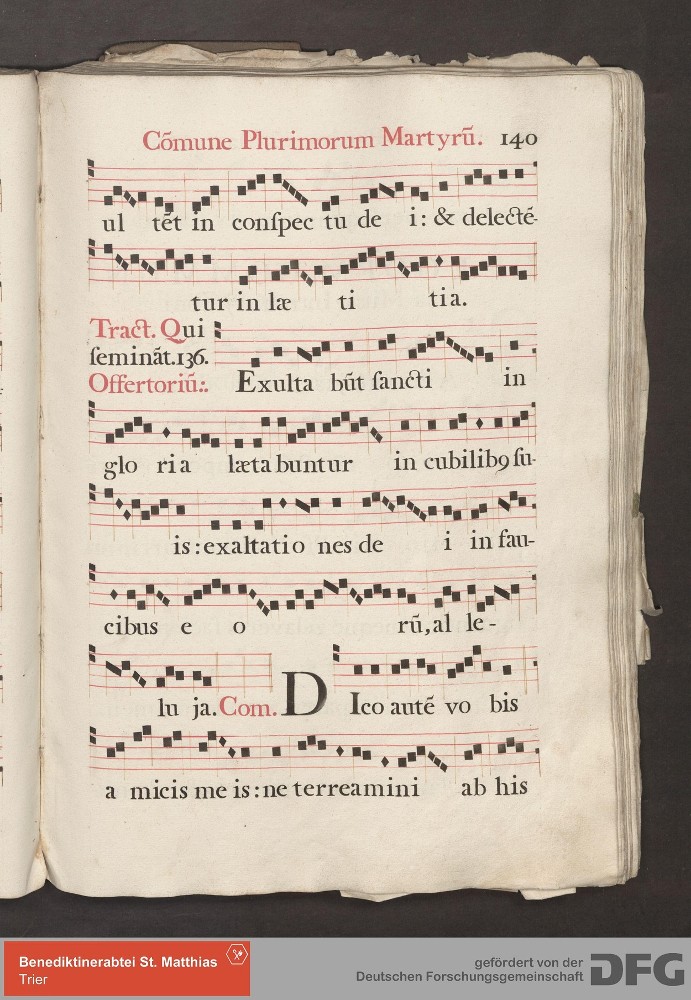 Cõmune Plurimorum Martyrũ. 140
ul tẽt in conſpec tu de i: & delecté-
tur in læ ti tia.
Tract. Qui
ſeminãt. 136.
Offertoriũ:. Exulta bũt ſancti in
glo ria læta buntur in cubilib9 ſu-
is: exaltatio nes de i in fau-
cibus e o rũ, al le-
lu ja. Com. DIco autẽ vo bis
a micis me is: ne terreamini ab his
Benediktinerabtei St. Matthias
Trier
gefördert von der
Deutschen Forschungsgemeinschaft DFG